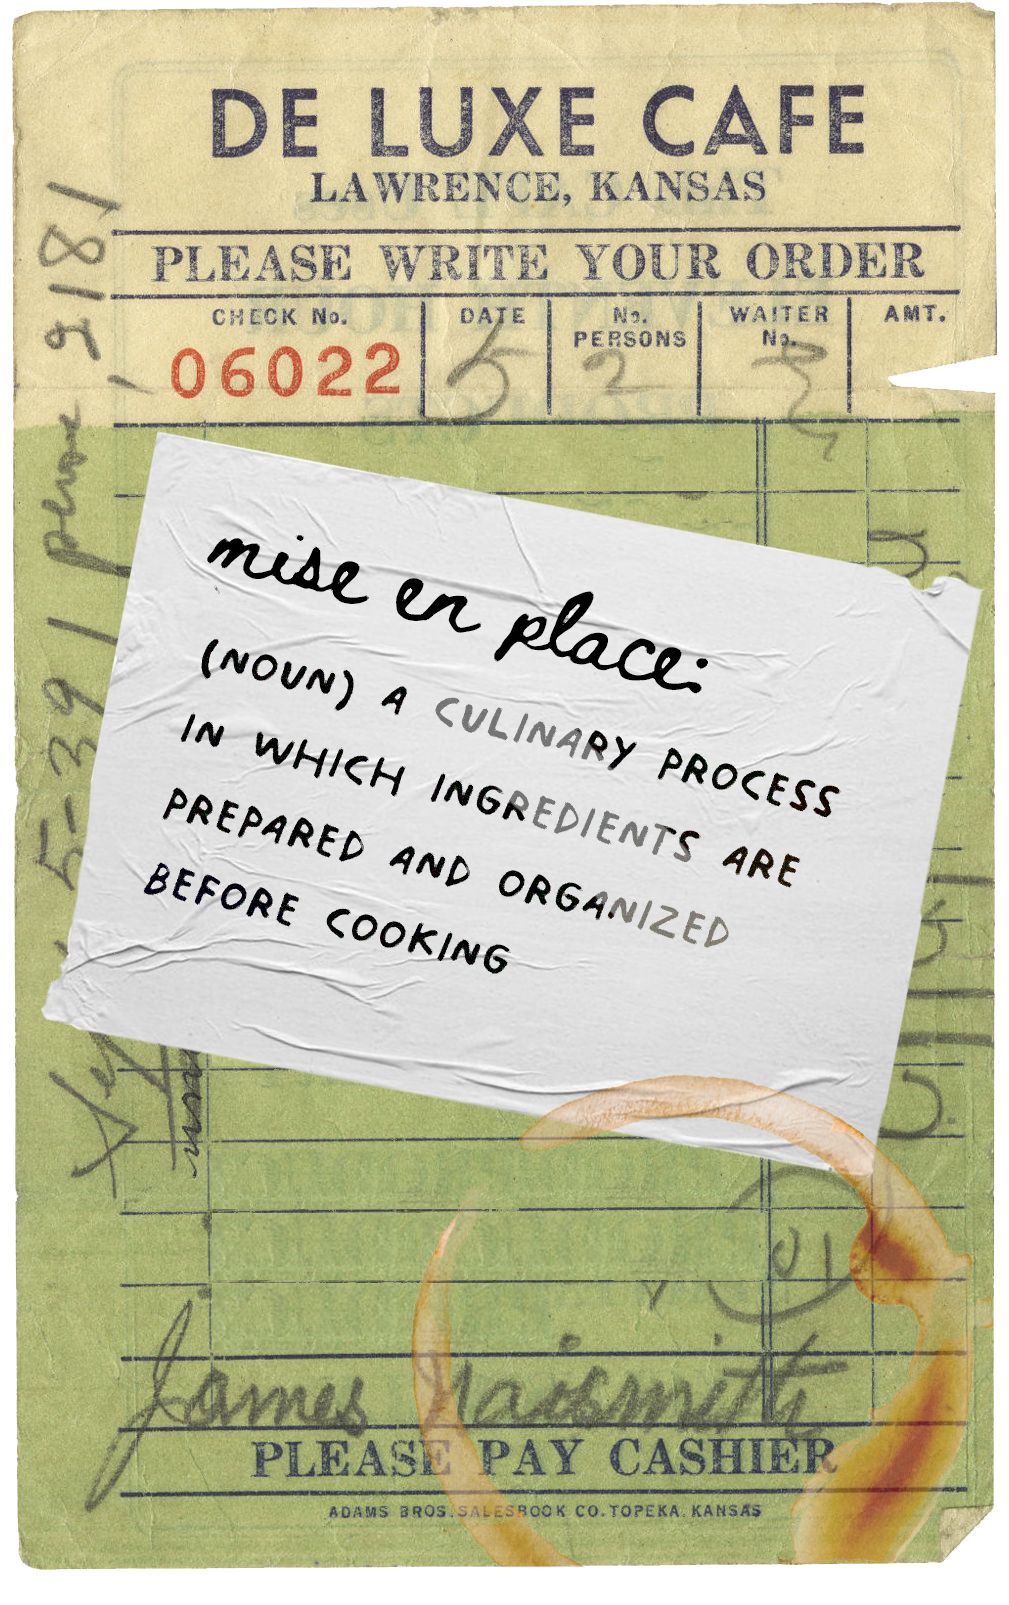 DE LUXE CAFE
LAWRENCE, KANSAS
PLEASE WRITE YOUR ORDER
CHECK No.
DATE
No. PERSONS
WAITER No.
AMT.
06022
5
2
mise en place:
(NOUN) A CULINARY PROCESS
IN WHICH INGREDIENTS ARE
PREPARED AND ORGANIZED
BEFORE COOKING
James Naismith
PLEASE PAY CASHIER
ADAMS BROS. SALESBOOK CO. TOPEKA, KANSAS